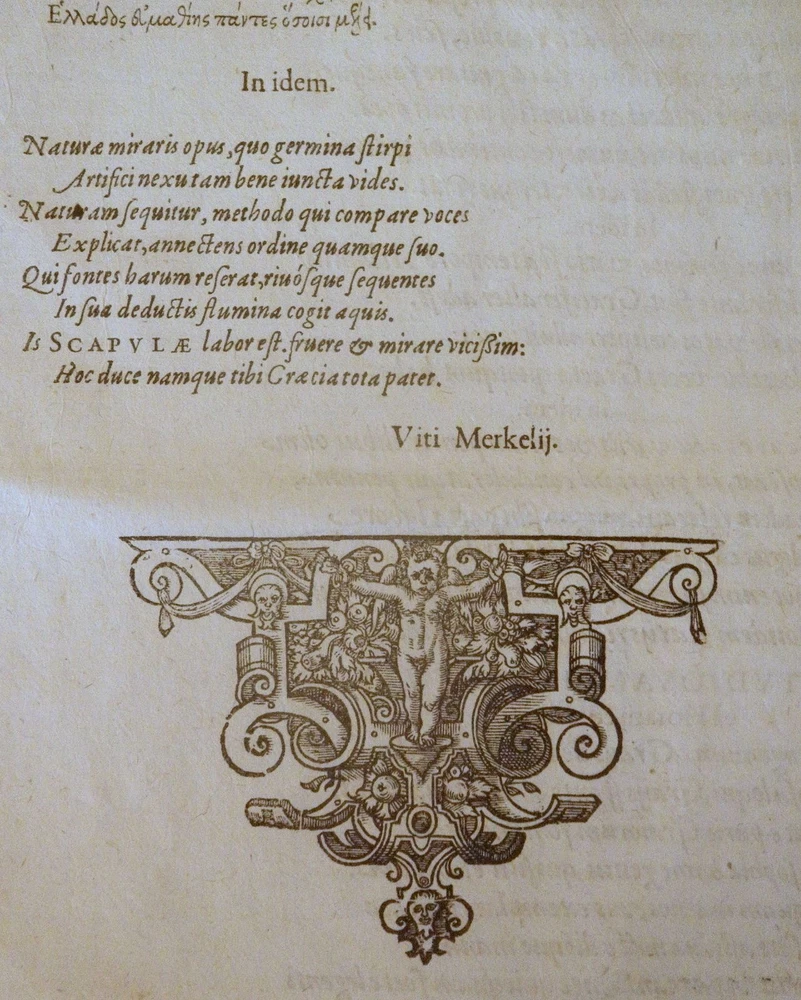 Ἑλλάδος εὐμαθίης πάντες ὅσοισι
In idem.
Naturæ miraris opus, quo germina ſtirpi
Artifici nexu tam bene iuncta vides.
Naturam ſequitur, methodo qui compare voces
Explicat, annectens ordine quamque ſuo.
Qui fontes harum reſerat, riuóſque ſequentes
In ſua deductis flumina cogit aquis.
Is SCAPVLÆ labor eſt. fruere & mirare viciſſim:
Hoc duce namque tibi Græcia tota patet.
Viti Merkelij.